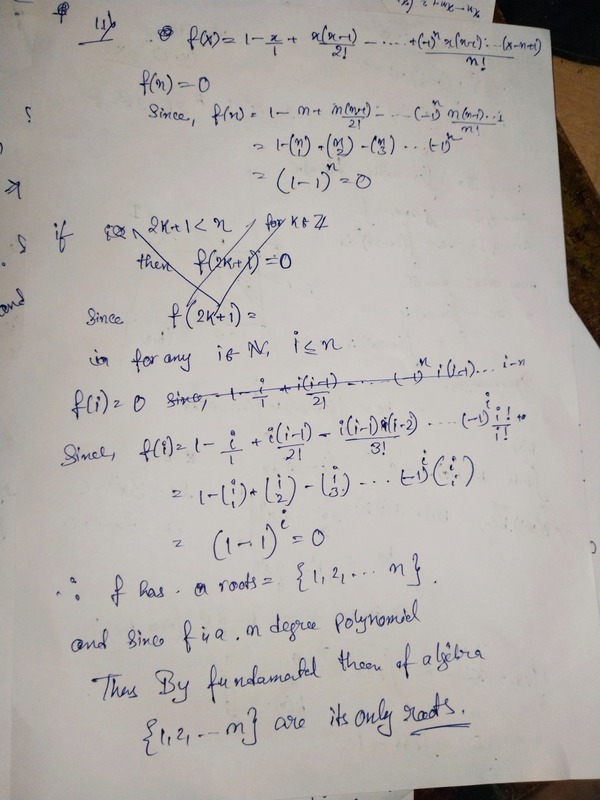 11) f(x) = 1 - x/1 + x(x-1)/2! - .... + (-1)^n x(x-1)...(x-n+1)/n!
f(n) = 0
Since, f(n) = 1 - n + n(n-1)/2! - ... (-1)^n n(n-1)..1/n!
= 1 - (n 1) + (n 2) - (n 3) ... (-1)^n
= (1-1)^n = 0
if 2k+1 < n for k ∈ Z
then f(2k+1) = 0
Since f(2k+1) =
for any i ∈ N, i ≤ n
f(i) = 0 since, = 1 - i/1 + i(i-1)/2! - ... (-1)^n i(i-1)... i-n
Since, f(i) = 1 - i/1 + i(i-1)/2! - i(i-1)(i-2)/3! ... (-1)^i i!/i!
= 1 - (i 1) + (i 2) - (i 3) ... (-1)^i (i i)
= (1-1)^i = 0
∴ f has n roots = {1, 2, ... n}.
and since f is a n degree polynomial
Thus By fundamental theem of algebra
{1, 2, ... n} are its only roots.
and